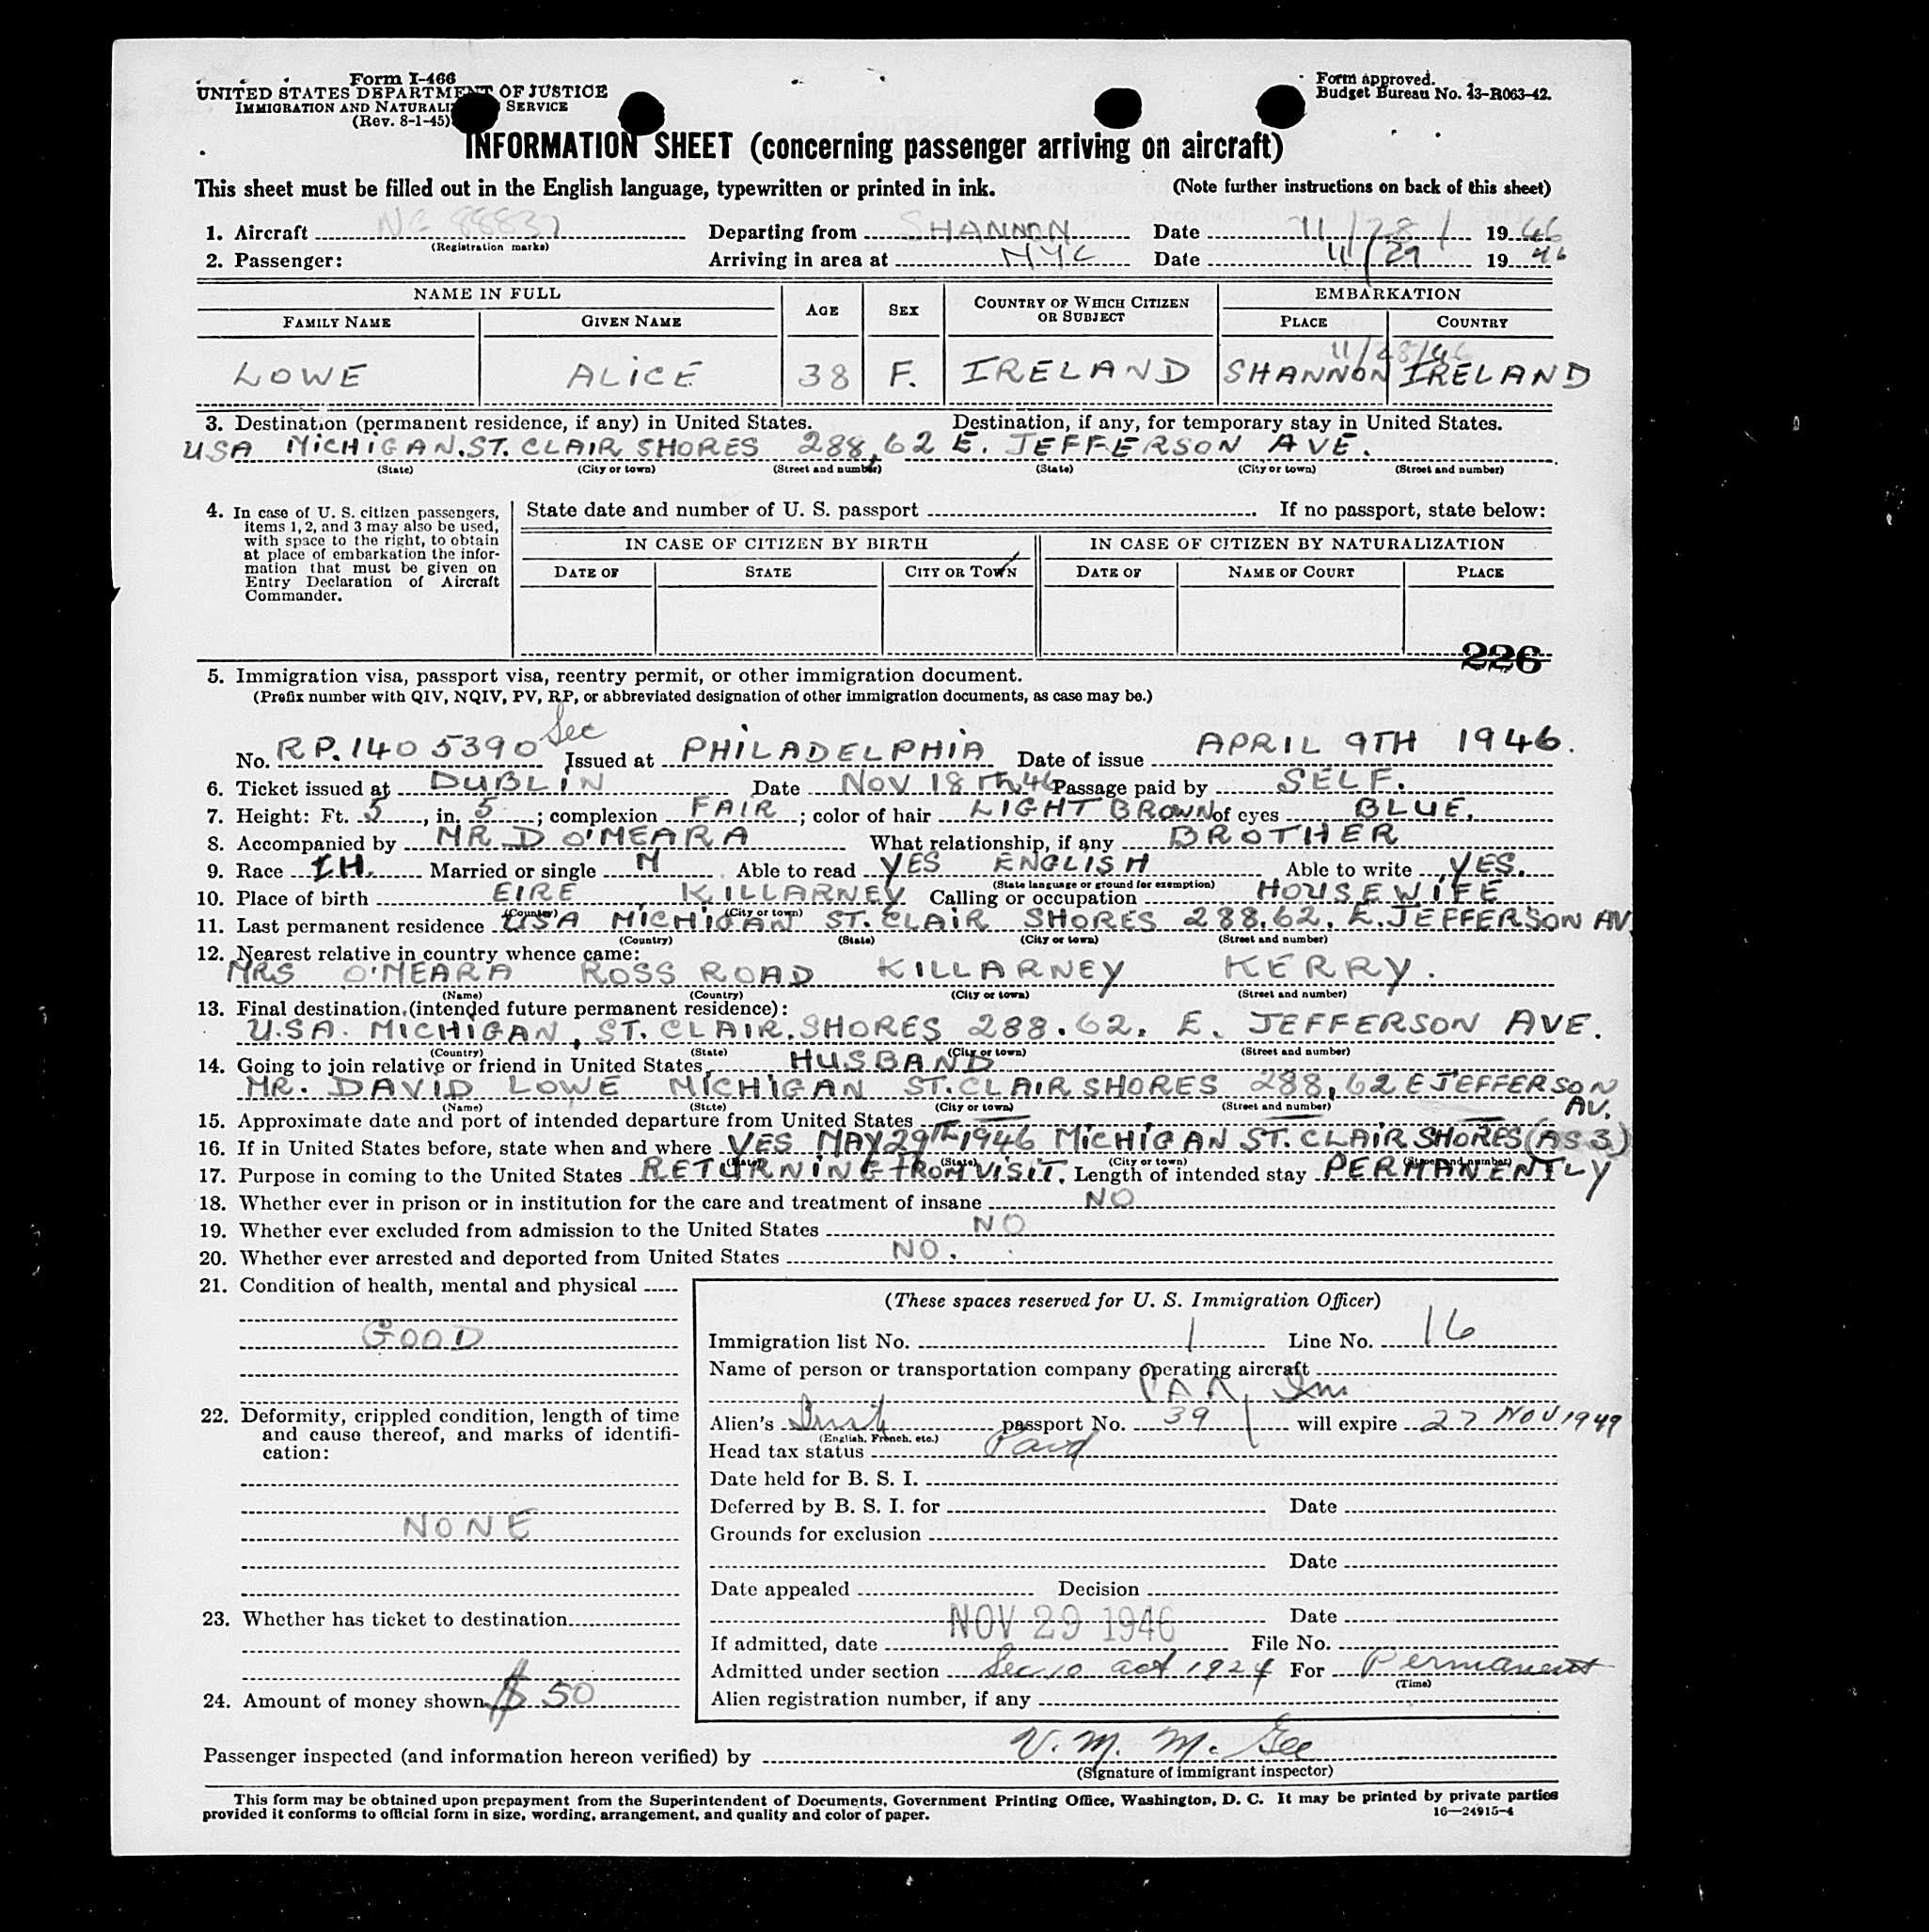 Form I-466
UNITED STATES DEPARTMENT OF JUSTICE
IMMIGRATION AND NATURALI SERVICE
(Rev. 8-1-45)
Form approved.
Budget Bureau No. 43-R063-42.
INFORMATION SHEET (concerning passenger arriving on aircraft)
This sheet must be filled out in the English language, typewritten or printed in ink. (Note further instructions on back of this sheet)
1. Aircraft NC 88837 Departing from SHANNON Date 11/28/ 19 46
(Registration marks)
2. Passenger: Arriving in area at NYC Date 11/29 19 46
NAME IN FULL AGE SEX COUNTRY OF WHICH CITIZEN OR SUBJECT EMBARKATION
FAMILY NAME GIVEN NAME PLACE COUNTRY
11/28/46
LOWE ALICE 38 F. IRELAND SHANNON IRELAND
3. Destination (permanent residence, if any) in United States. Destination, if any, for temporary stay in United States.
USA MICHIGAN. ST. CLAIR SHORES 288,62 E. JEFFERSON AVE.
(State) (City or town) (Street and number) (State) (City or town) (Street and number)
4. In case of U. S. citizen passengers,
items 1, 2, and 3 may also be used,
with space to the right, to obtain
at place of embarkation the infor-
mation that must be given on
Entry Declaration of Aircraft
Commander.
State date and number of U. S. passport If no passport, state below:
IN CASE OF CITIZEN BY BIRTH IN CASE OF CITIZEN BY NATURALIZATION
DATE OF STATE CITY OR TOWN DATE OF NAME OF COURT PLACE
226
5. Immigration visa, passport visa, reentry permit, or other immigration document.
(Prefix number with QIV, NQIV, PV, RP, or abbreviated designation of other immigration documents, as case may be.)
Sec
No. RP. 1405390 Issued at PHILADELPHIA Date of issue APRIL 9TH 1946.
6. Ticket issued at DUBLIN Date NOV 18TH 46 Passage paid by SELF.
7. Height: Ft. 5, in. 5; complexion FAIR; color of hair LIGHT BROWN of eyes BLUE.
8. Accompanied by MR D O'MEARA What relationship, if any BROTHER
9. Race IH. Married or single M Able to read YES ENGLISH Able to write YES.
(State language or ground for exemption)
10. Place of birth EIRE, KILLARNEY Calling or occupation HOUSEWIFE
(Country) (City or town)
11. Last permanent residence USA MICHIGAN ST. CLAIR SHORES 288.62. E. JEFFERSON AV.
(Country) (State) (City or town) (Street and number)
12. Nearest relative in country whence came:
MRS O'MEARA ROSS ROAD KILLARNEY KERRY.
(Name) (Country) (City or town) (Street and number)
13. Final destination (intended future permanent residence):
U.S.A. MICHIGAN, ST. CLAIR. SHORES 288.62. E. JEFFERSON AVE.
(Country) (State) (City or town) (Street and number)
14. Going to join relative or friend in United States, HUSBAND
MR. DAVID LOWE MICHIGAN ST. CLAIR SHORES 288,62 E JEFFERSON AV.
(Name) (State) (City or town) (Street and number)
15. Approximate date and port of intended departure from United States — — —
16. If in United States before, state when and where YES MAY 29TH 1946 MICHIGAN ST. CLAIR SHORES (AS 3)
(Date) (State) (City or town) (Street and number)
17. Purpose in coming to the United States RETURNING FROM VISIT. Length of intended stay PERMANENTLY
18. Whether ever in prison or in institution for the care and treatment of insane NO
19. Whether ever excluded from admission to the United States NO
20. Whether ever arrested and deported from United States NO.
21. Condition of health, mental and physical
GOOD
22. Deformity, crippled condition, length of time
and cause thereof, and marks of identifi-
cation:
NONE
23. Whether has ticket to destination
24. Amount of money shown $ 50
(These spaces reserved for U. S. Immigration Officer)
Immigration list No. 1 Line No. 16
Name of person or transportation company operating aircraft
PAA
Alien's passport No. 39 will expire 27 NOV 1949
(English, French, etc.)
Head tax status Paid
Date held for B. S. I.
Deferred by B. S. I. for Date
Grounds for exclusion
Date
Date appealed Decision
Date
If admitted, date NOV 29 1946 File No.
Admitted under section Sec 10 act 1924 For Permanent
(Time)
Alien registration number, if any
Passenger inspected (and information hereon verified) by V. M. McGee
(Signature of immigrant inspector)
This form may be obtained upon prepayment from the Superintendent of Documents, Government Printing Office, Washington, D. C. It may be printed by private parties
provided it conforms to official form in size, wording, arrangement, and quality and color of paper. 16—24915-4